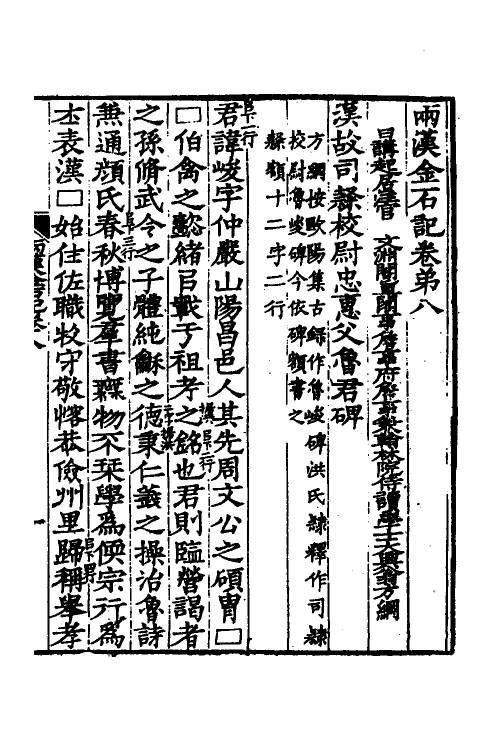 兩漢金石記卷弟八
日講起居注官 文淵閣直閣事詹事府詹事兼翰林院侍讀學士大興翁方綱
漢故司隸校尉忠惠父魯君碑
方綱按歐陽集古錄作魯峻碑洪氏隸釋作司隸
校尉魯峻碑今依碑額書之
隸額十二字二行
君諱峻字仲嚴山陽昌邑人其先周文公之碩胄□
□伯禽之懿緒㠯載于祖考之銘也君則監營謁者
之孫脩武令之子體純龢之德秉仁義之操治魯詩
兼通顔氏春秋博覽羣書無物不栞學為偄宗行為
士表漢□始仕佐職牧守敬恪恭儉州里歸稱舉孝
兩漢金石記卷八
一